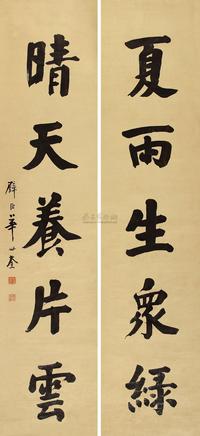 夏雨生眾綠
晴天養片雲
璧臣華世奎